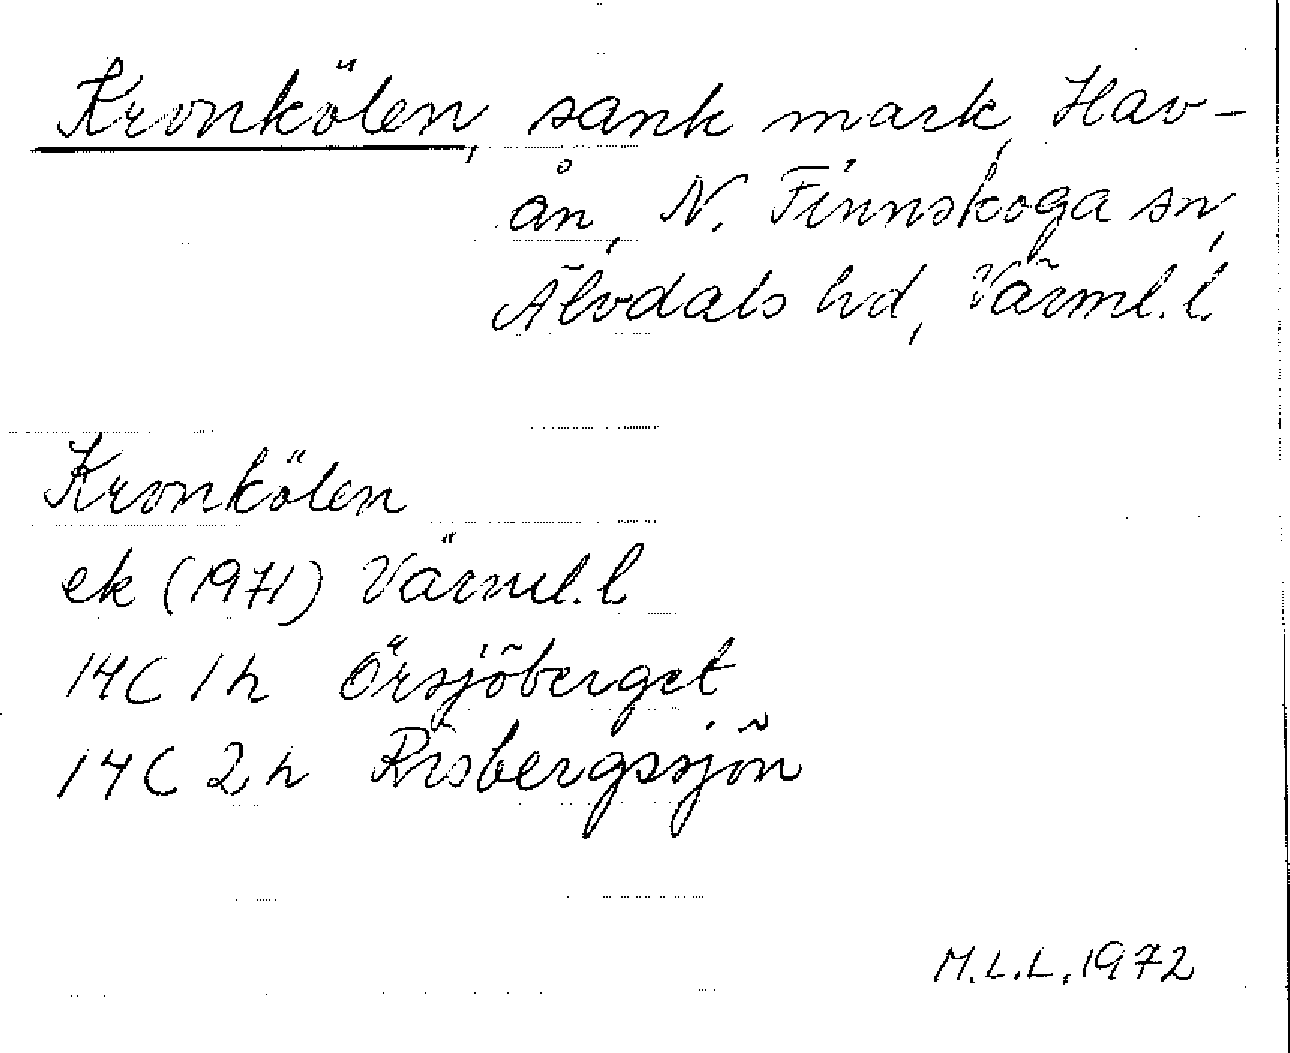 Kronkölen, sank mark, Hav-
ån, N. Finnskoga sn,
Älvdals hd, Värml. l.
Kronkölen
ek (1971) Värml. l
14C 1h Örsjöberget
14C 2h Risbergssjön
M.L.L. 1972